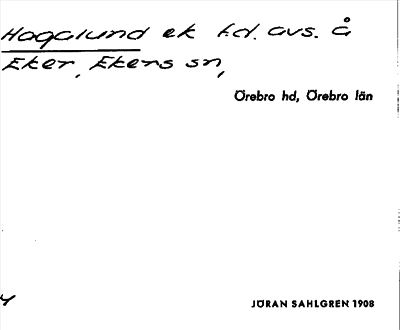 Hagalund ek f.d. avs. å
Eker, Ekers sn,
Örebro hd, Örebro län
JÖRAN SAHLGREN 1908